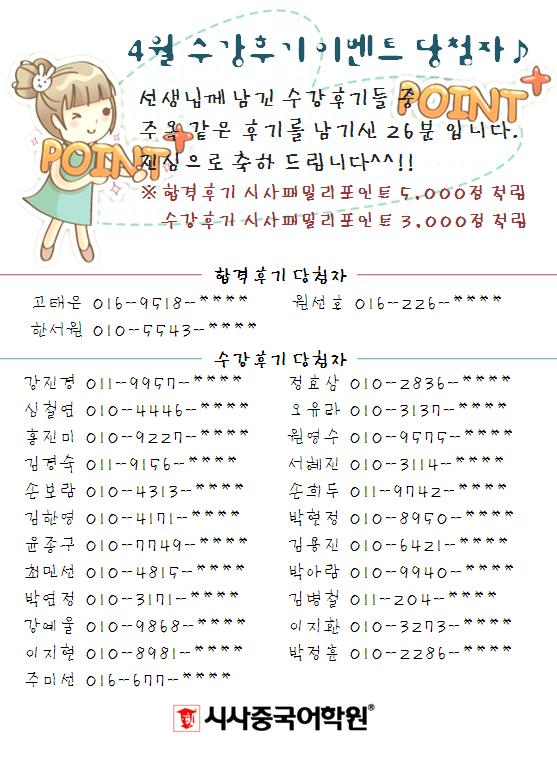 4월 수강후기 이벤트 당첨자♪
선생님께 남긴 수강후기들 중
주옥 같은 후기를 남기신 26분 입니다.
진심으로 축하 드립니다^^!!
POINT+
POINT+
※합격후기 시사패밀리포인트 5,000점 적립
수강후기 시사패밀리포인트 3,000점 적립
합격후기 당첨자
고태은 016-9518-**** 원선호 016-226-****
한서원 010-5543-****
수강후기 당첨자
강진경 011-9957-**** 정효삼 010-2836-****
심철연 010-4446-**** 오유라 010-3137-****
홍진미 010-9227-**** 원영수 010-9575-****
김경숙 011-9156-**** 서혜진 010-3114-****
손보람 010-4313-**** 손희두 011-9742-****
김한영 010-4171-**** 박현정 010-8950-****
윤종구 010-7749-**** 김용진 010-6421-****
최민선 010-4815-**** 박아람 010-9940-****
박연정 010-3171-**** 김병철 011-204-****
강예울 010-9868-**** 이지환 010-3273-****
이지현 010-8981-**** 박정훈 010-2286-****
주미선 016-677-****
시사중국어학원®